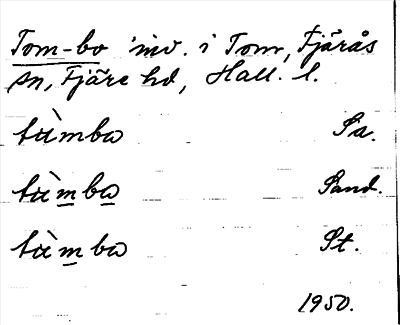 Tom-bo inv. i Tom, Fjärås
sn, Fjäre hd, Hall. l.
tùmbω Sa.
tùm̲bω̲ Sand.
tùm̲bω St.
1950.